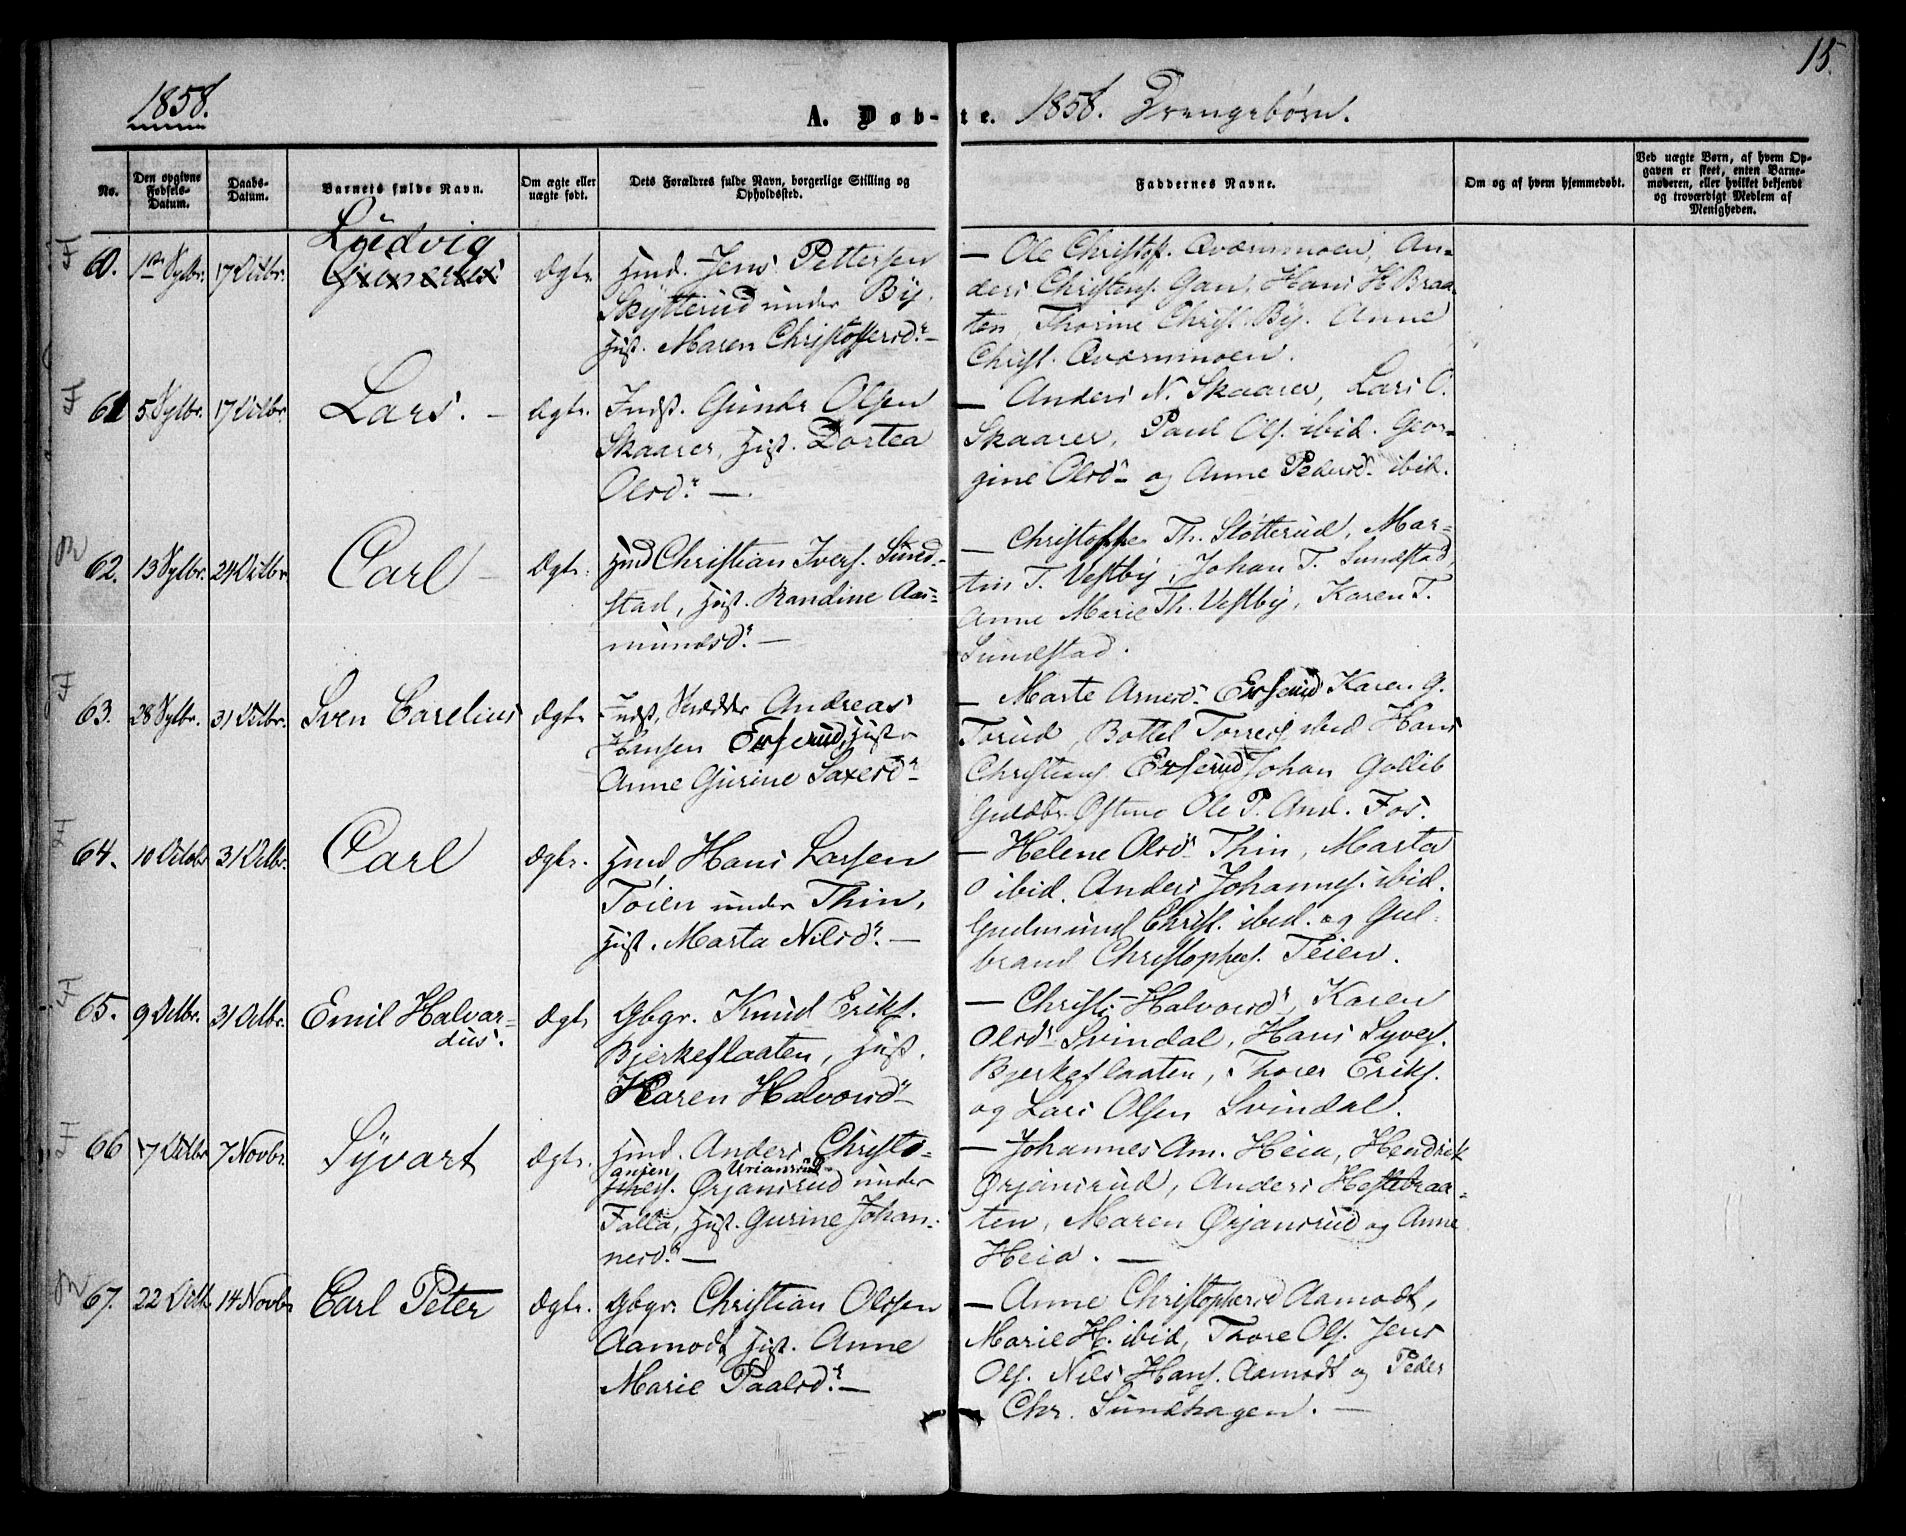 15.
1858.
A. Døb-te. 1858. Drengebørn.
No.
Den opgivne Fødsels-Datum.
Daabs-Datum.
Barnets fulde Navn.
Om ægte eller uægte født.
Dets Forældres fulde Navn, borgerlige Stilling og Opholdssted.
Faddernes Navne.
Om og af hvem hjemmedøbt.
Ved uægte Børn, af hvem Op-
gaven er skeet, enten Barne-
moderen, eller hvilket bekjendt
og troværdigt Medlem af
Menigheden.
60. 1ste 17 Octbr. Ludvig Ægte
Hmd. Jens Pettersen
Skÿtterud under Bÿ.
Hust. Maren Christoffersdr. —
— Ole Christof. Qværnmoen, An-
ders Christens. Gan, Hans H Braa-
ten, Thorine Christ. Bÿ. Anne
Christ. Qværnmoen.
61 5 17 Octbr. Lars. — Ægte.
Indst. Gunder Olsen
Skaarer, Hust. Dortea
Olsdr. —.
— Anders N. Skaarer, Lars O.
Skaarer, Paul Ols. ibid. Geor-
gine Olsdr. og Anne Pedersdr. ibid.
62. 13 24 Octbr Carl — Ægte.
Hmd Christian Ivers. Sund-
stad, Hust. Randine Aas-
mundsdr. —
— Christoffer Th. Støtterud, Mar-
tin T. Vestbÿ, Johan T. Sundstad,
Anne Marie Th. Vestbÿ, Karen T.
Sundstad.
63. 28 31 Octbr. Sven Carelius Ægte
Indst, Andreas
Hansen Erserud, Hustr
Anne Gurine Saxesdr.
— Marte Arnesdr. Erserud Karen G.
Torud, Bottel Torres. ibid Hans
Christians. Erserud Johan Gollib
Guldbr. Ole P. And. Fos.
64. 10 Octobr 31 Octbr. Carl Ægte.
Hmd, Hans Larsen
Tøien under Thin,
Hust. Marta Nilsdr. —
— Helene Olsdr. Thin, Marta
O ibid. Anders Johannes. ibid.
Gudmund Christ. ibid. og Gul-
brand Christophers. Teien.
65. 9 Octbr. 31 Octbr. Emil Halvar-
dius. Ægte
Gbgr. Knud Eriks.
Bjerkeflaaten, Hust.
Karen Halvorsdr.
— Christi Halvorsdr, Karen
Olsdr. Svindal, Hans Syvers.
Bjerkeflaaten, Thorer Eriks.
og Lars Olsen Svindal.
66 7 Octbr 7 Novbr. Sÿvart Ægte.
Hmd. Anders Christo-
ansen Uriansrud
phers. Ørjansrud under
Falla, Hust. Gurine Johan-
nesdr. —
— Johannes Am. Heia, Hendrik
Ørjansrud, Anders Hestebraa-
ten, Maren Ørjansrud og Anne
Heia. —
67. 22 Octb. 14 Novbr Carl Peter Ægte.
Gbgr. Christian Olssen
Aamodt Hust. Anne
Marie Paalsdr. —
— Anne Christophersd Aamodt,
Marie H. ibid, Thore Ols. Jens
Ols. Nils Hans. Aamodt og Peder
Chr. Sundhagen. —